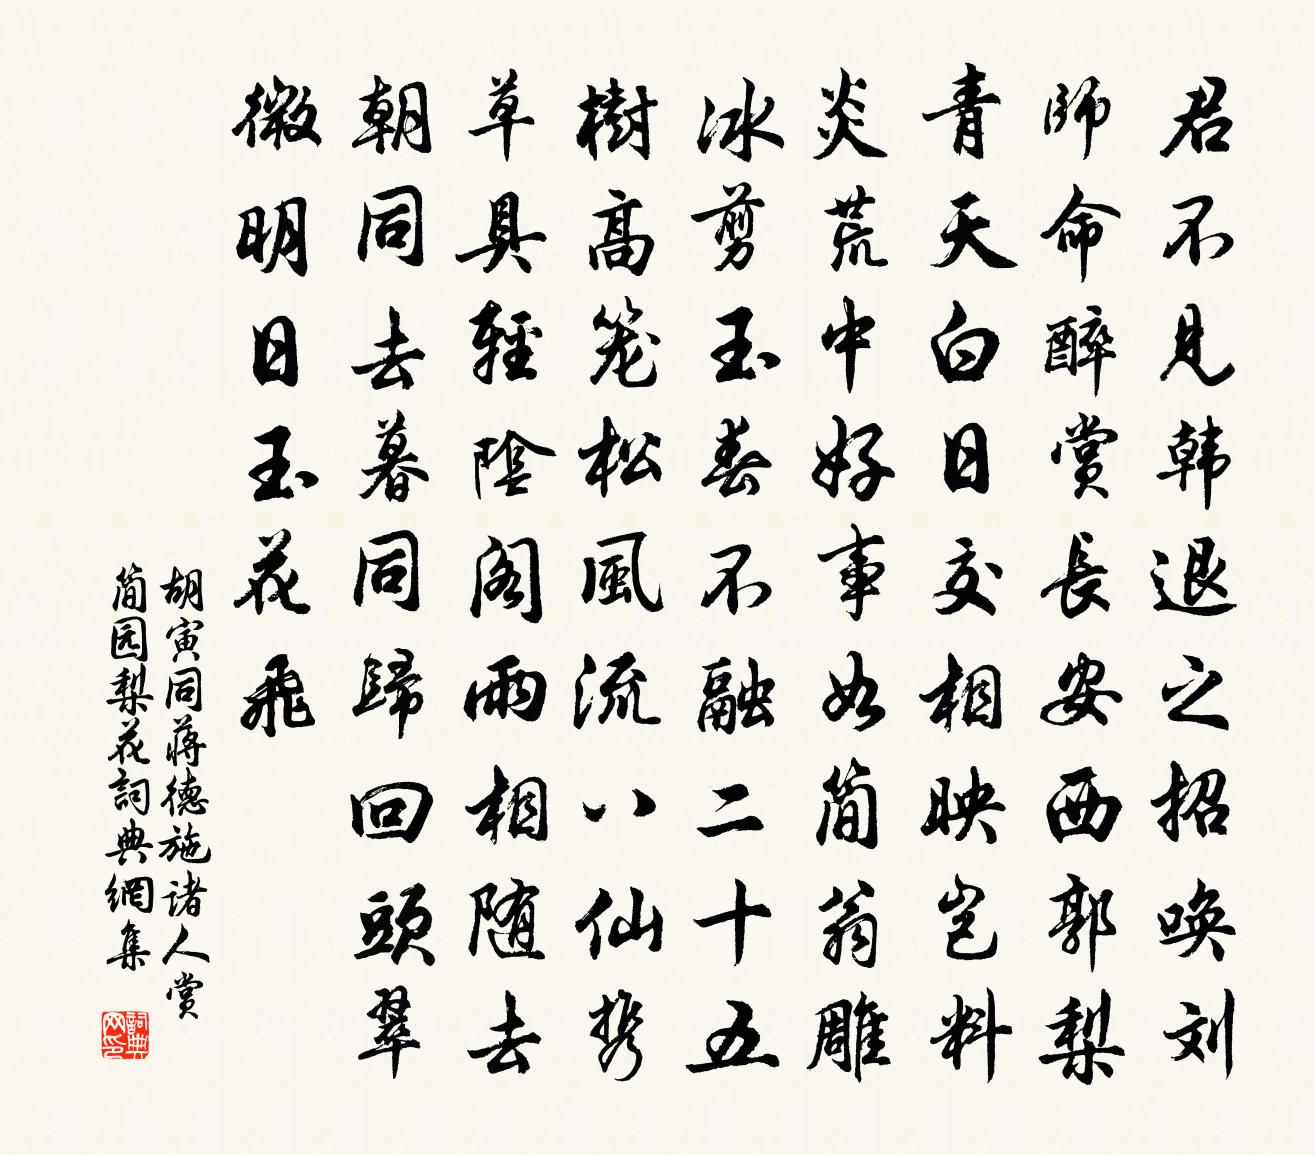 君不見韩退之招唤刘
師命醉赏長安西郭梨
青天白日交相映岂料
炎荒中好事如简翁雕
冰剪玉春不融二十五
樹高笼松風流八仙携
草具輕陰阁雨相随去
朝同去暮同歸回頭翠
微明日玉花飛
胡寅同蒋德施诸人赏
简园梨花詞典網集
詞典网印